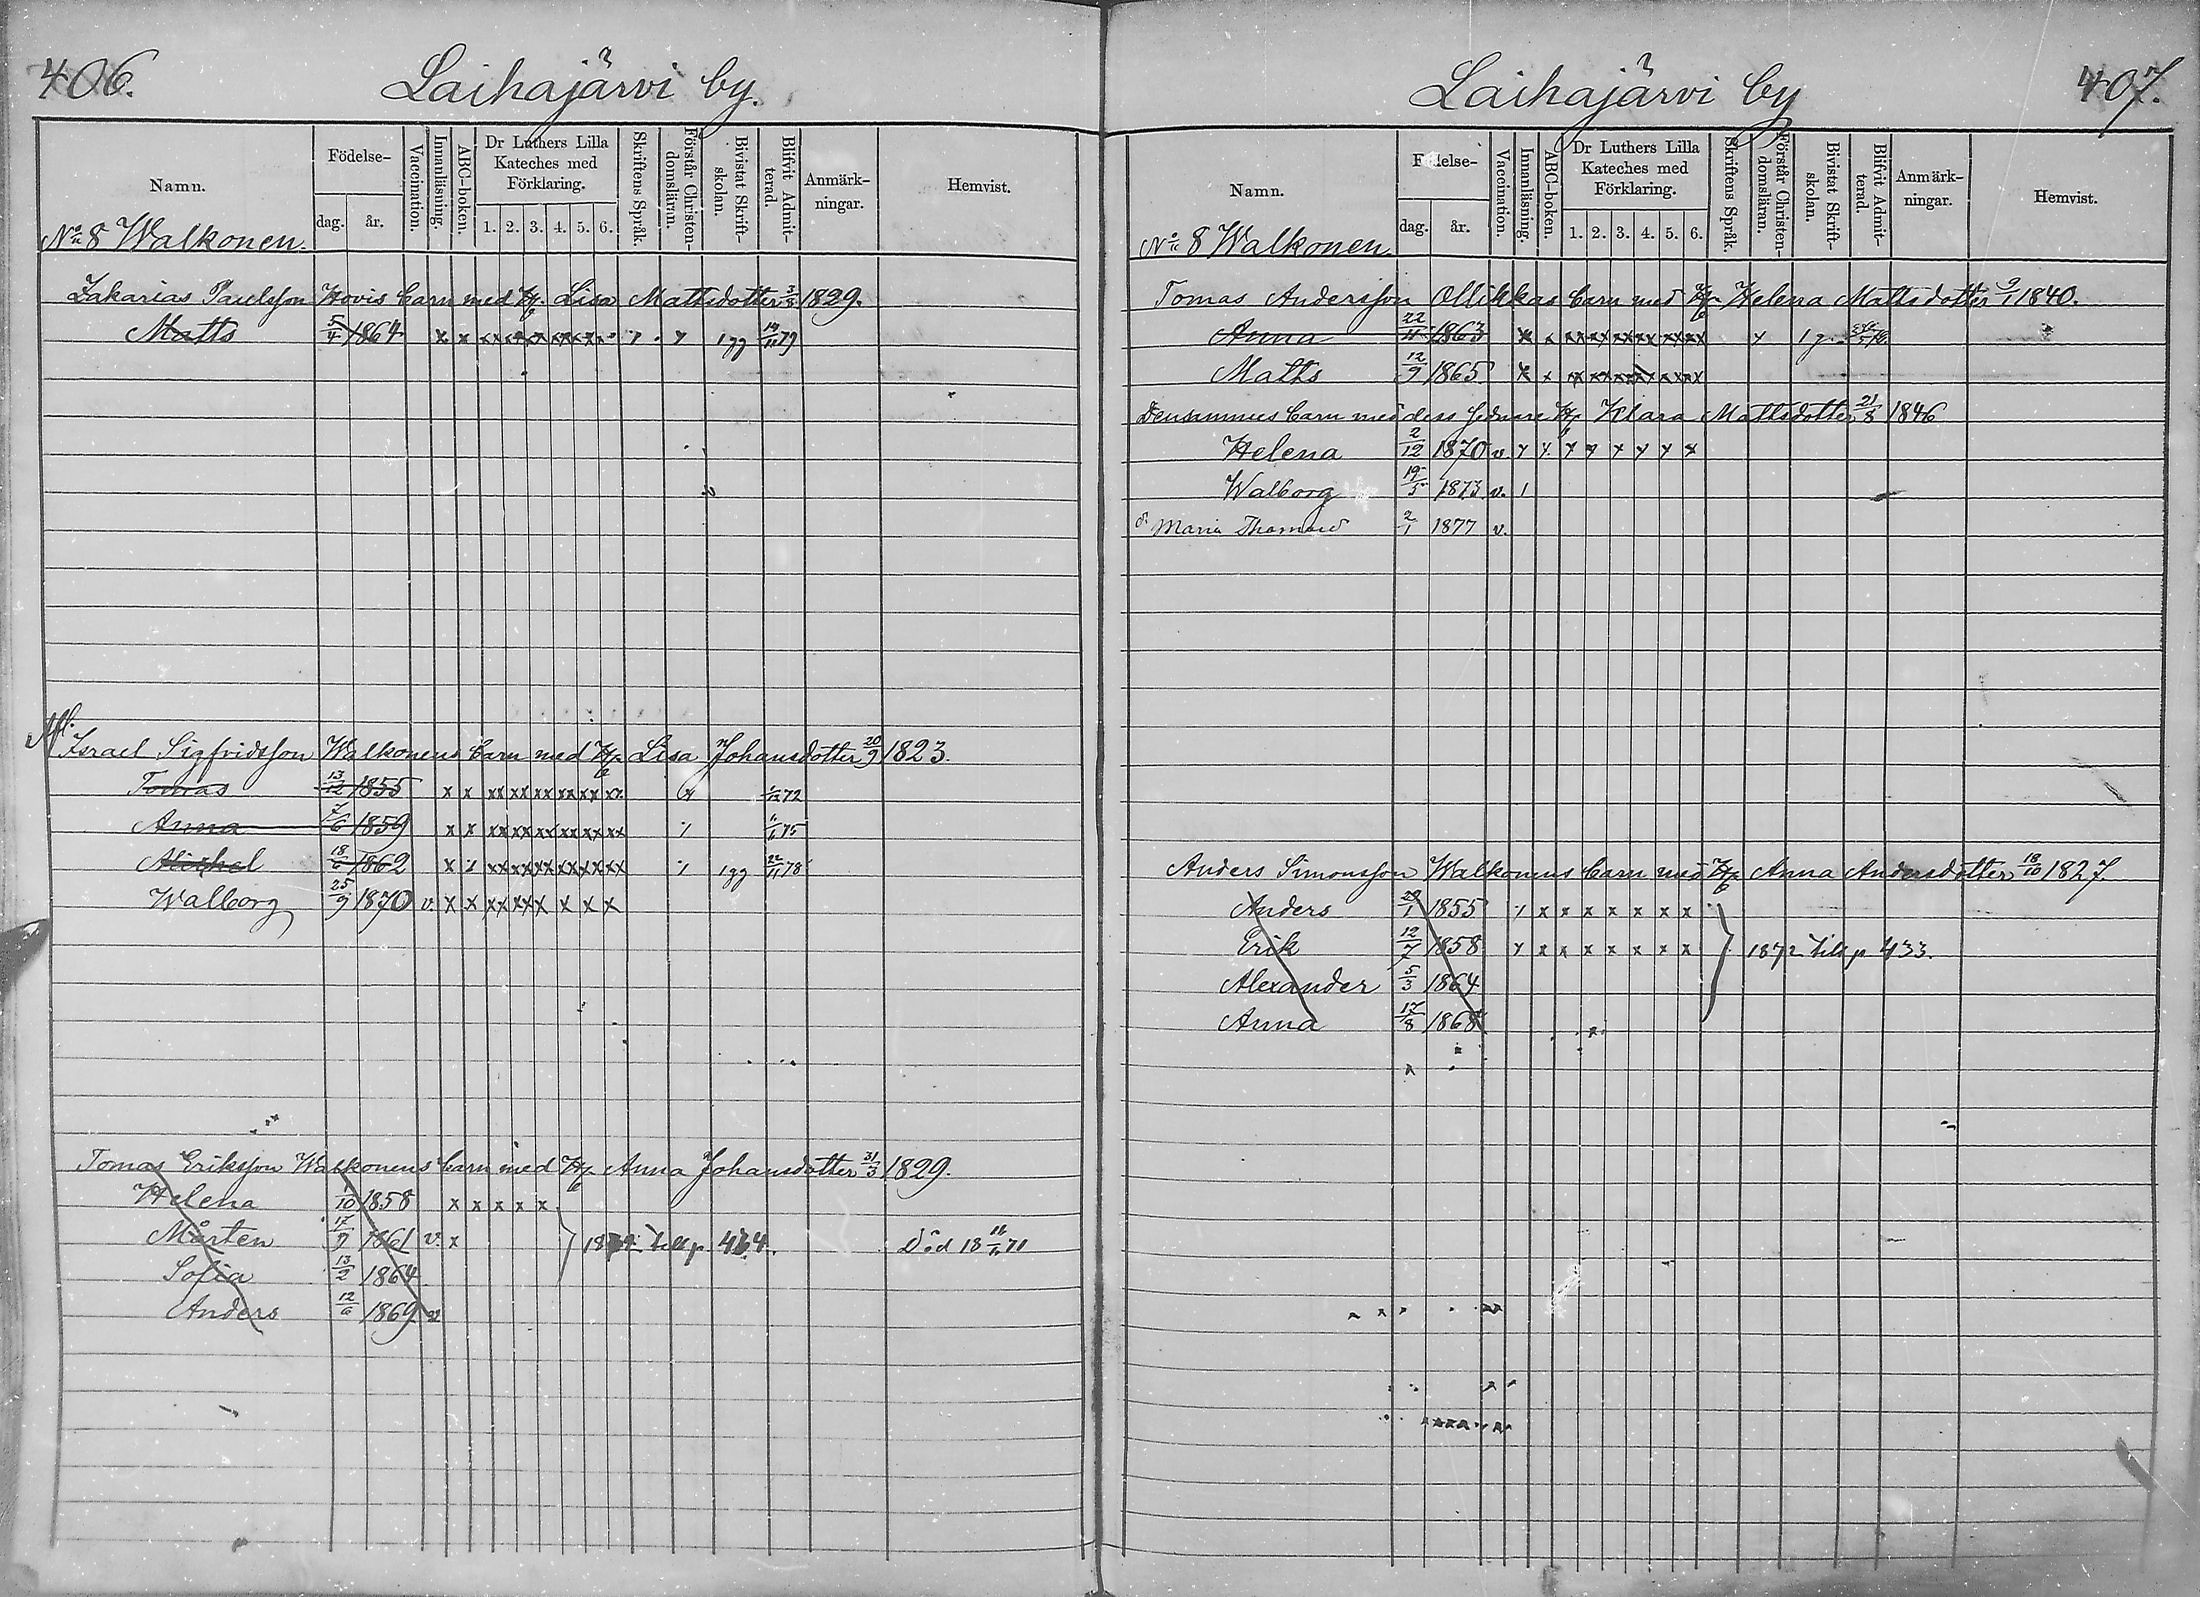 406. Laihajärvi by.
Namn. Födelse- dag. år. Vaccination. Innanläsning. ABC-boken. Dr Luthers Lilla Kateches med Förklaring. 1. 2. 3. 4. 5. 6. Skriftens Språk. Förstår Christen-domsläran. Bivistat Skrift-skolan. Blifvit Admit-terad. Anmärk-ningar. Hemvist.
No 8 Walkonen.
Zakarias Paulsson Hovis barn med H. Lisa Mattsdotter 3/3 1829.
Matts 5/4 1864 x x xx xx xx xx xx 1gg 14/11 79
Israel Sigfridsson Walkonens barn med H. Lisa Johansdotter 20/9 1823.
Tomas 13/12 1855 x x xx xx xx xx xx xx 72
Anna 7/6 1859 x x xx xx xx xx xx xx 75
Michel 18/6 1862 x x xx xx xx xx xx xx 1gg 22/11 78
Walborg 25/9 1870 v. x x xx xx x x x x
Tomas Eriksson Walkonens barn med H. Anna Johansdotter 31/3 1829.
Helena 1/10 1858 x x x x x
Mårten 17/9 1861 v. x till p Död 18 71
Sofia 13/2 1864
Anders 12/6 1869 v
Laihajärvi by 407.
Namn. Födelse- dag. år. Vaccination. Innanläsning. ABC-boken. Dr Luthers Lilla Kateches med Förklaring. 1. 2. 3. 4. 5. 6. Skriftens Språk. Förstår Christen-domsläran. Bivistat Skrift-skolan. Blifvit Admit-terad. Anmärk-ningar. Hemvist.
No 8 Walkonen.
Tomas Andersson Ollikkas barn med H. Helena Mattsdotter 9/1 1840.
Anna 22/11 1863 x x xx xx xx xx xx xx 1 g.
Matts 12/9 1865 x x xx xx xx xx xx xx
Densammes barn med dess senare H. Klara Mattsdotter 21/8 1846
Helena 2/12 1870 v. x x x x x x x x
Walborg 19/5 1873 v. 1
d. Maria 2/1 1877 v.
Anders Simonsson Walkonens barn med H. Anna Andersdotter 18/10 1827.
Anders 29/1 1855 x x x x x x x x
Erik 12/7 1858 x x x x x x x x } 1872 till p 433.
Alexander 5/3 1864
Anna 17/8 1868